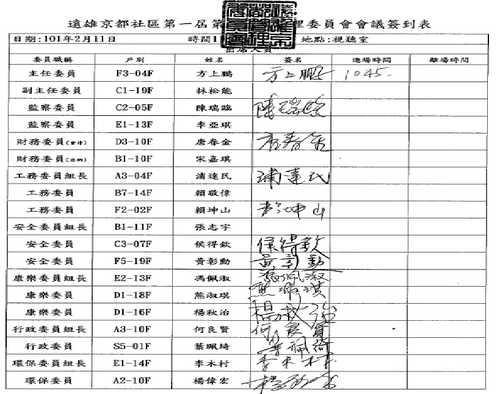 遠雄京都社區第一屆第 理委員會會議簽到表
日期:101年2月11日 時間:1 地點:視聽室
出席人員
委員職稱 戶別 姓名 簽名 進場時間 離場時間
主任委員 F3-04F 方上鵬 方上鵬 1045.
副主任委員 C1-19F 林松龍
監察委員 C2-05F 陳瑞臨 陳瑞臨
監察委員 E1-13F 李亞琪
財務委員(會計) D3-10F 唐春金 唐春金
財務委員 B1-10F 宋嘉琪
工務委員組長 A3-04F 浦達民 浦達民
工務委員 B7-14F 賴敬偉
工務委員 F2-02F 賴坤山 坤山
安全委員組長 B1-11F 張志宇
安全委員 C3-07F 侯得欽 侯得欽
安全委員 F5-19F 黃彰勳 黃彰勳
康樂委員組長 E2-13F 馮佩淑 馮佩淑
康樂委員 D1-18F 熊淑琪 熊淑琪
康樂委員 D1-16F 楊秋治 楊秋治
行政委員組長 A3-10F 何良賢 何良賢
行政委員 S5-01F 葉珮綺 葉珮綺
環保委員組長 E1-14F 李木村 李木村
環保委員 A2-10F 楊偉宏